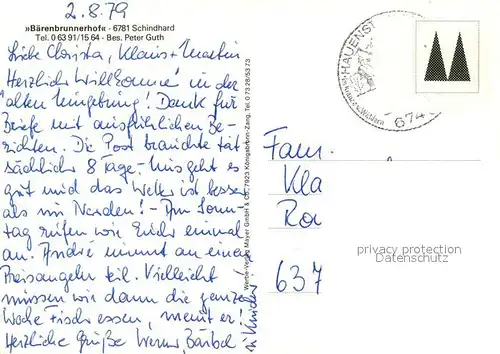 2.8.79
»Bärenbrunnerhof« - 6781 Schindhard
Tel. 0 63 91/15 64 - Bes. Peter Guth
Liebe Christa, Klaus + Martin
Herzlich Willkommen in der
alten Umgebung! Dank für
Briefe mit ausführlichen Be-
richten. Die Post brauchte tat
sächlich 8 Tage. Uns geht es
gut und das Wetter ist besser
als im Norden! - Am Sonn-
tag rufen wir Euch einmal
an. André nimmt an einem
Preisangeln teil. Vielleicht
müssen wir dann die ganze
Woche Fisch essen, meint er!
Herzliche Grüße Werner, Bärbel
u. Kinder!
Werbe-Verlag Mayer GmbH & Co., 7923 Königsbronn-Zang, Tel. 0 73 28/53 73
HAUENST
674
Fam.
Kla
Ro
637
privacy protection
Datenschutz